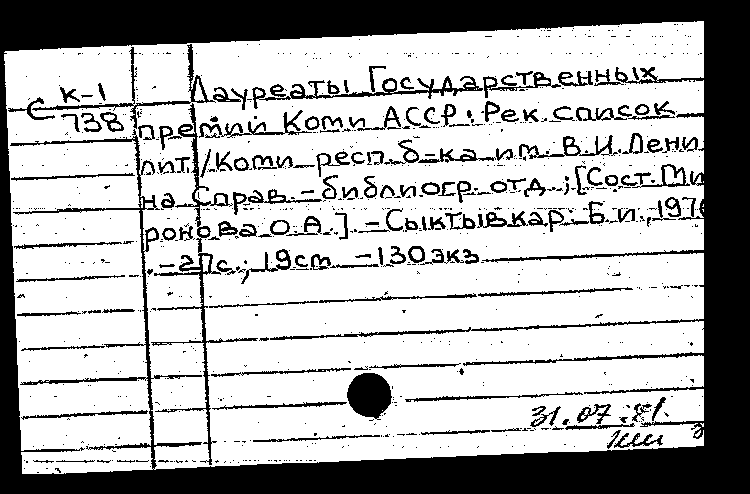 С К-1
738
Лауреаты Государственных
премий Коми АССР: Рек. список
лит. /Коми респ. б-ка им. В.И.Лени
на Справ.-библиогр. отд.; [Сост. Ми
ронова О.А.] -Сыктывкар: Б.и., 197
.-27с.; 19см -130экз
31.07.81.